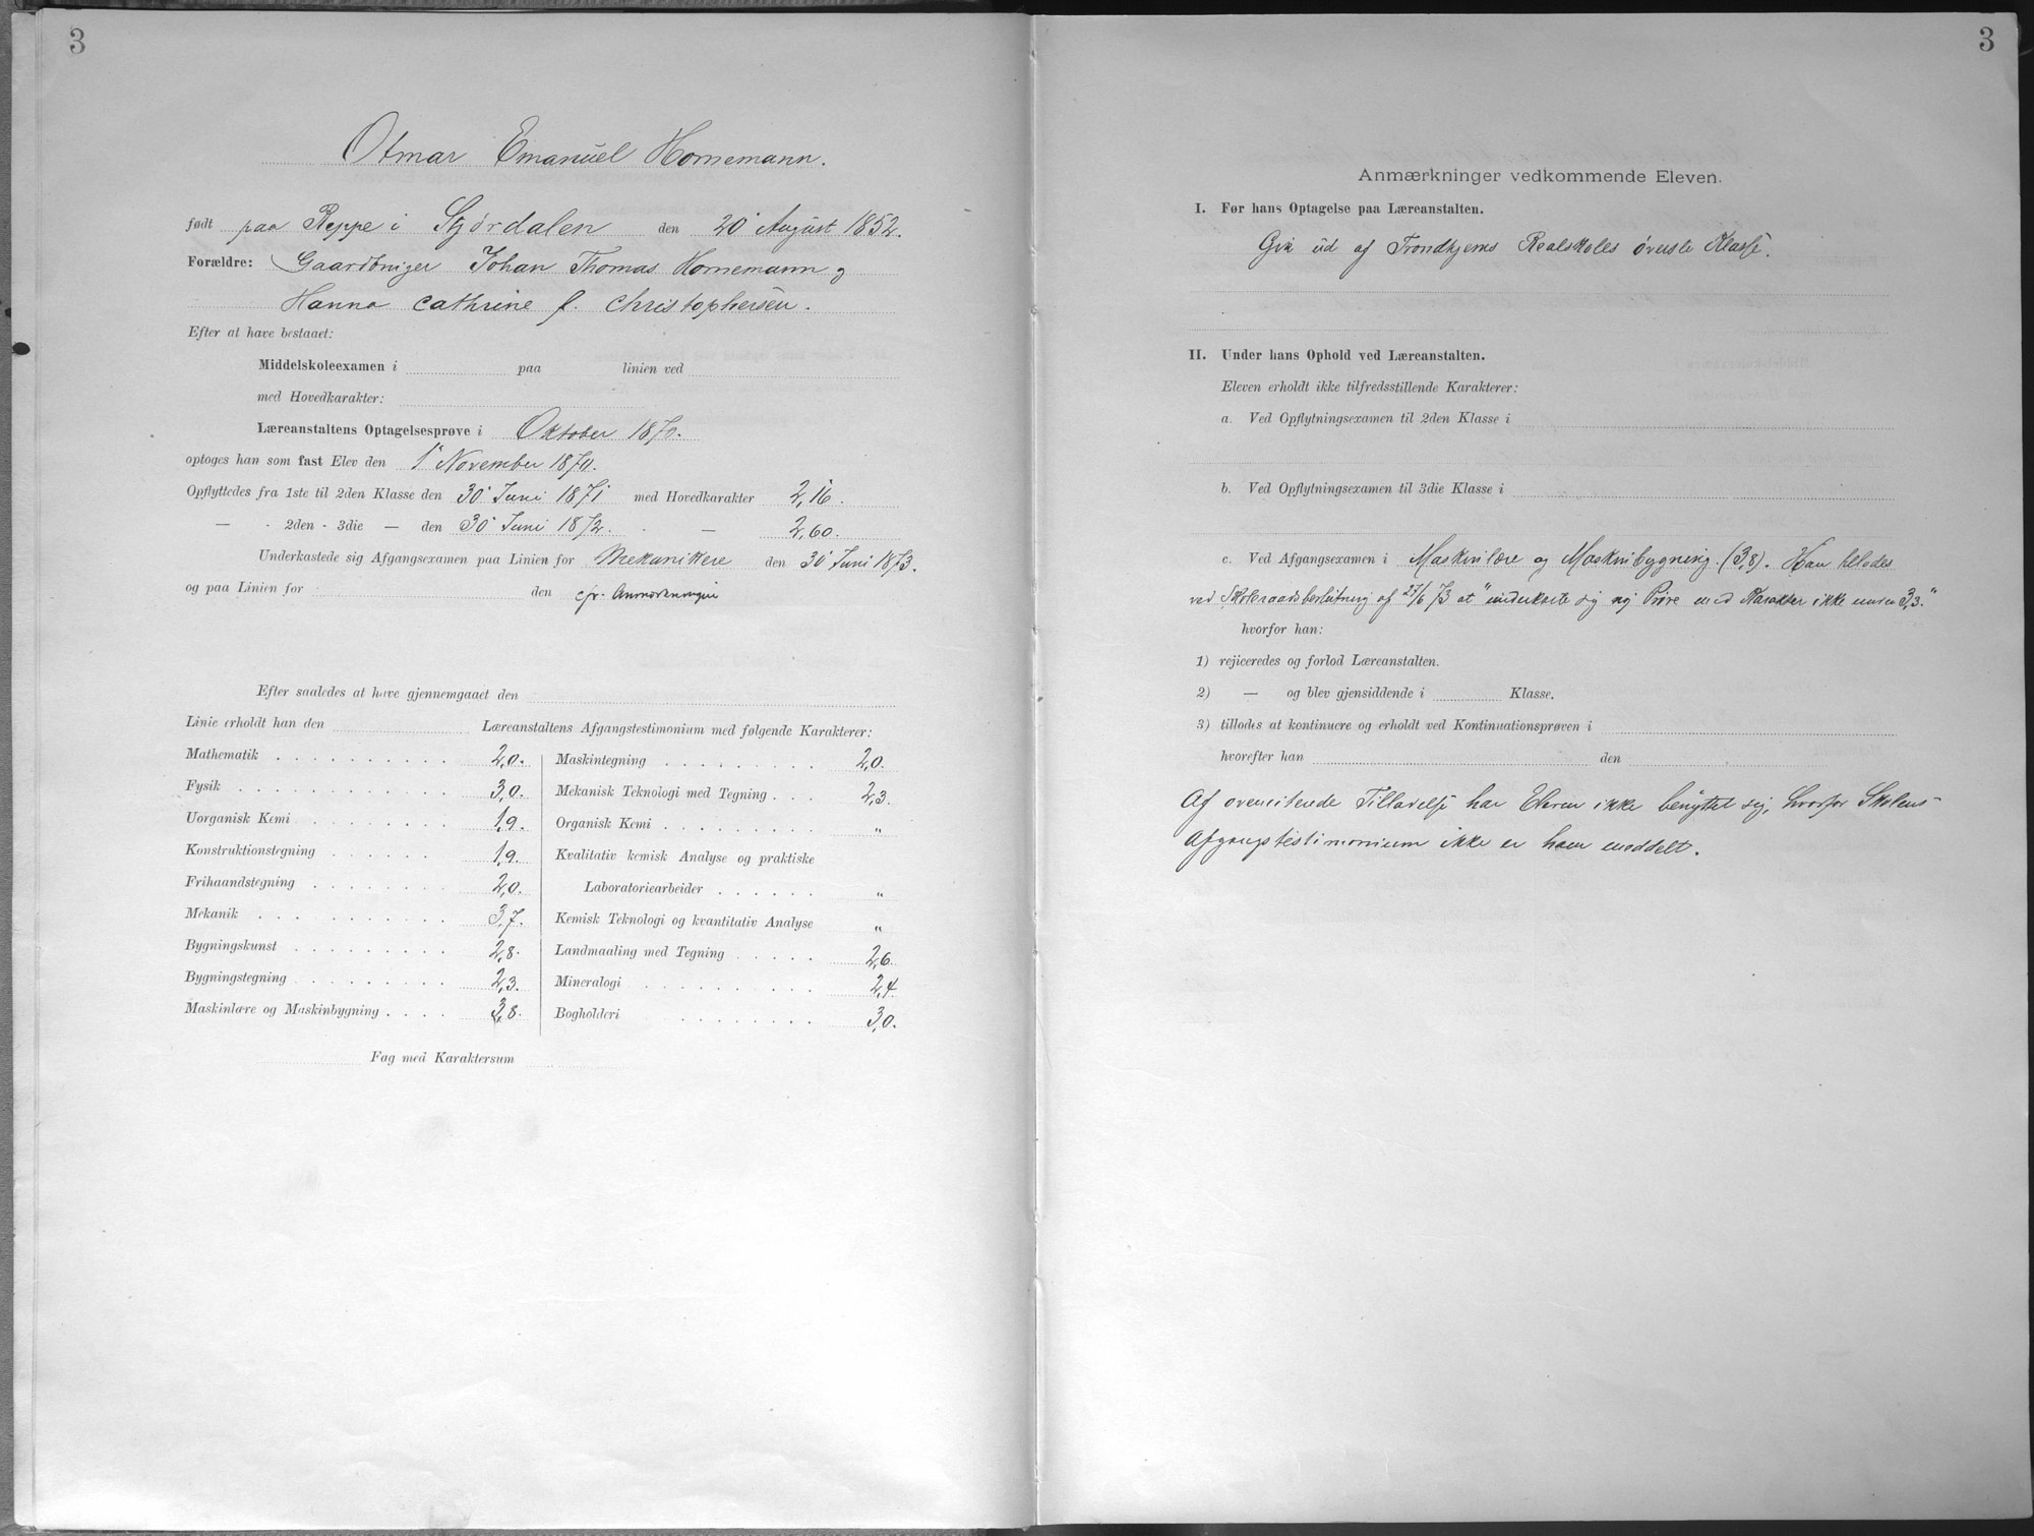 3
Otmar Emanuel Hornemann.
født paa Reppe i Stjørdalen den 20' August 1852.
Forældre: Gaardbruger Johan Thomas Hornemann og
Hanna Cathrine f. Christophersen.
Efter at have bestaaet:
Middelskoleexamen i paa linien ved
med Hovedkarakter:
Læreanstaltens Optagelsesprøve i Oktober 1870.
optoges han som fast Elev den 1' November 1870.
Opflyttedes fra 1ste til 2den Klasse den 30' Juni 1871 med Hovedkarakter 2,16.
— - 2den - 3die — den 30' Juni 1872. - — 2,60.
Underkastede sig Afgangsexamen paa Linien for Mekanikere den 30' Juni 1873.
og paa Linien for den cfr. Anmærkningen
Efter saaledes at have gjennemgaaet den
Linie erholdt han den Læreanstaltens Afgangstestimonium med følgende Karakterer:
Mathematik 2,0.
Fysik 3,0.
Uorganisk Kemi 1,9.
Konstruktionstegning 1,9.
Frihaandstegning 2,0.
Mekanik 3,7.
Bygningskunst 2,8.
Bygningstegning 2,3.
Maskinlære og Maskinbygning 3,8.
Maskintegning 2,0.
Mekanisk Teknologi med Tegning 2,3.
Organisk Kemi "
Kvalitativ kemisk Analyse og praktiske
Laboratoriearbeider "
Kemisk Teknologi og kvantitativ Analyse "
Landmaaling med Tegning 2,6.
Mineralogi 2,4
Bogholderi 3,0.
Fag med Karaktersum
3
Anmærkninger vedkommende Eleven.
I. Før hans Optagelse paa Læreanstalten.
Gik ud af Trondhjems Realskoles øverste Klasse.
II. Under hans Ophold ved Læreanstalten.
Eleven erholdt ikke tilfredsstillende Karakterer:
a. Ved Opflytningsexamen til 2den Klasse i
b. Ved Opflytningsexamen til 3die Klasse i
c. Ved Afgangsexamen i Maskinlære og Maskinbygning. (3,8). Han tilledes
ved Skoleraadsbeslutning af 27/6 73 at "underkaste sig ny Prøve med Karakter ikke under 3,3."
hvorfor han:
1) rejiceredes og forlod Læreanstalten.
2) — og blev gjensiddende i Klasse.
3) tillodes at kontinuere og erholdt ved Kontinuationsprøven i
hvorefter han den
Af ovenciterede Tilladelse har Eleven ikke benyttet sig, hvorfor Skolens
Afgangstestimonium ikke er ham meddelt.